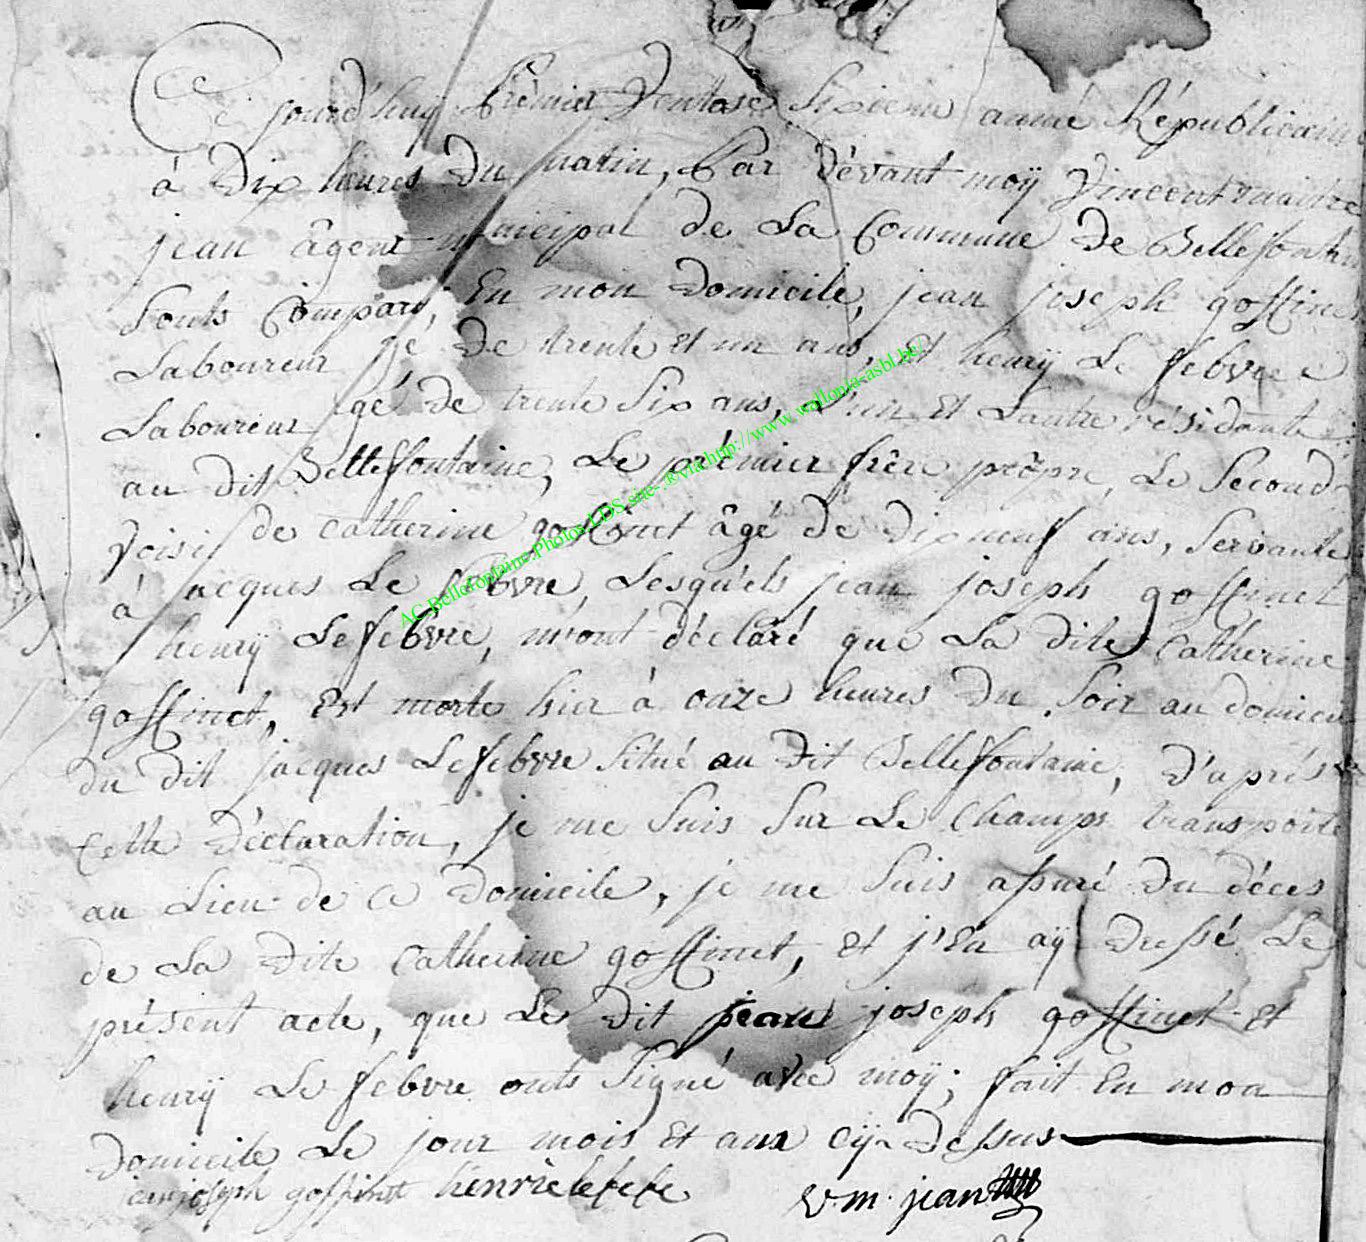 Ce jourd'huy prémier Ventose Sixieme année Républicain
à Dix heures Du matin, Par dévant moÿ Vincent maitre
jean âgent municipal de La Commune De Bellefontai
Sonts Comparu, En mon Domicile, jean joseph goffine
Laboureur âgé De trente Et un ans, Et henrÿ Le febvre
Laboureur âgé De trente Six ans, L'un Et Lautre résidants
au dit Bellefontaine, Le prémier frère propre, Le Second
Voisin de Catherine goffinet âgé de Dix neuf ans, Servante
à jacques Le febvre, Lesquels jean joseph goffinet
henrÿ Lefebvre, m'ont déclaré que La dite Catherine
goffinet, Est morte hier à onze heures Du Soir au domicil
du dit jacques Lefebvre Situé au Dit Bellefontaine, D'après
Cette Déclaration, je me Suis Sur Le Champs transporté
au Lieu de Ce Domicile, je me Suis assuré Du déces
de La Dite Catherine goffinet, Et j'En aÿ Dressé Le
présent acte, que Le Dit jean joseph goffinet Et
henrÿ Le febvre onts Signé avec moÿ; fait En mon
Domicile Le jour mois Et ans Cÿ-Dessus
jean joseph goffinet henrie lefefe V.m. jean
AC-Bellefontaine.Photos LDS site- ®via:http://www.wallonia-asbl.be/